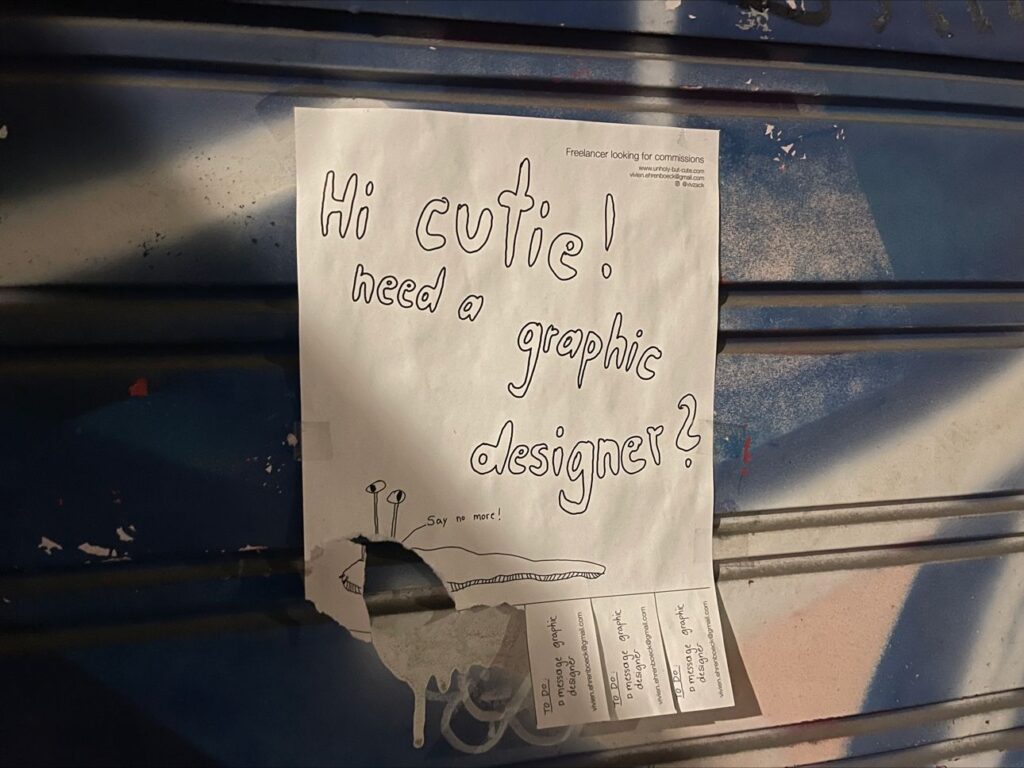 Freelancer looking for commissions
www.unholy-but-cute.com
vivien.ahrenboeck@gmail.com
@vivzack
Hi cutie!
need a
graphic
designer?
Say no more!
TO DO:
message graphic
designer
vivien.ahrenboeck@gmail.com
TO DO:
message graphic
designer
vivien.ahrenboeck@gmail.com
TO DO:
message graphic
designer
vivien.ahrenboeck@gmail.com